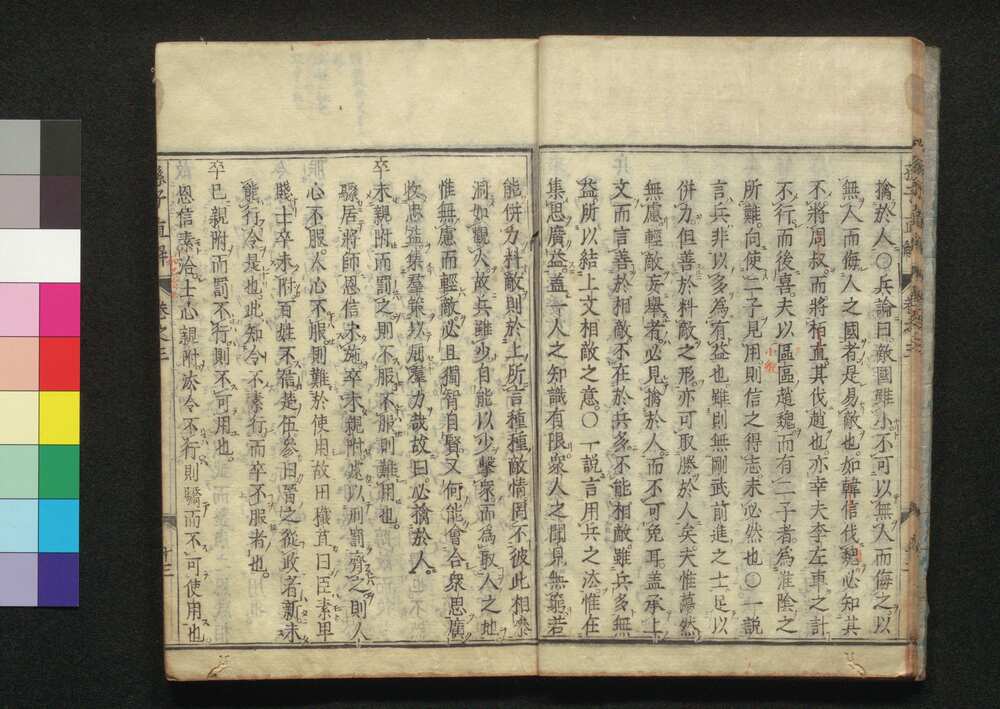 擒於人〇兵論曰敵國雖小不可以無人而侮之以
無人而侮人之國者是易敵也如韓信伐魏必知其
不將周叔而將栢直其伐趙也亦幸夫李左車之計
不行而後喜夫以區區趙魏而有二子者為淮陰之
所難向使二子見用則信之得志未必然也〇一說
言兵非以多為有益也雖則無剛武前進之士足以
併力但善於料敵之形亦可取勝於人矣夫惟蕩然
無慮輕敵妄舉者必見擒於人而不可免耳蓋承上
文而言善於相敵不在於兵多不能相敵雖兵多無
益所以結上文相敵之意〇一說言用兵之法惟在
集思廣益蓋一人之知識有限衆人之聞見無窮若
能併力料敵則於上所言種種敵情罔不彼此相參
洞如觀火故兵雖少自能以少擊衆而為取人之地
惟無慮而輕敵必且獨智自賢又何能會合衆思廣
收忠益集羣策以屈羣力哉故曰必擒於人
卒未親附而罰之則不服不服則難用也
驕居將師恩信未施卒未親附遽以刑罰齊之則人
心不服人心不服則難於使用故田穰苴曰臣素卑
賤士卒未附百姓不信楚伍參曰晉之從政者新未
能行令是也此知令不素行而卒不服者也
卒已親附而罰不行則不可用也
恩信素洽士心親附法令不行則驕而不可使用也
孫子直解 卷之三 十二